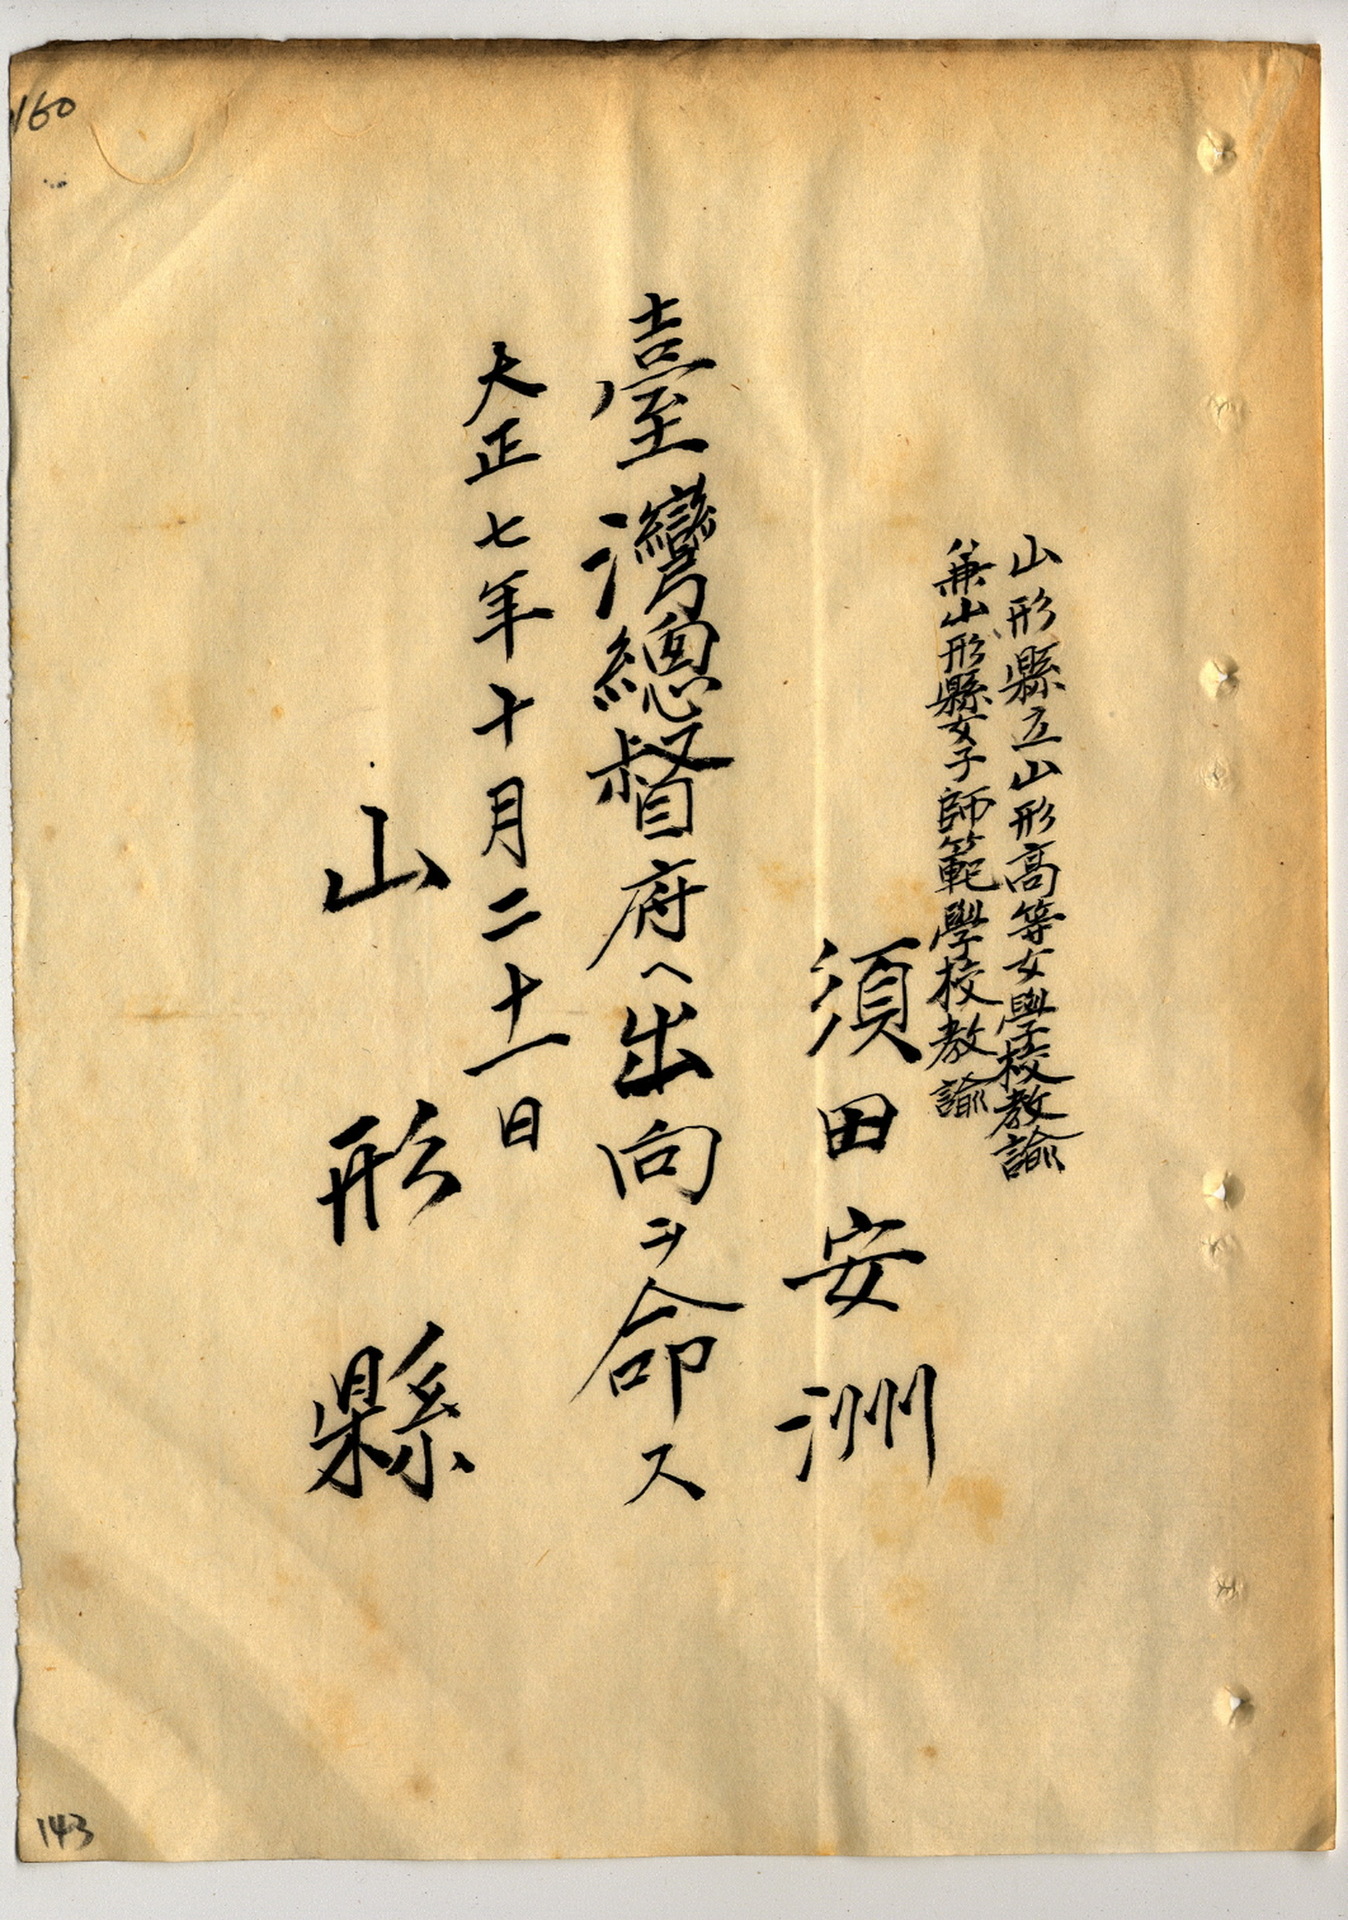 山形縣立山形高等女學校教諭
兼山形縣女子師範學校教諭
須田安洲
臺灣總督府へ出向ヲ命ス
大正七年十月二十一日
山形縣
160
143